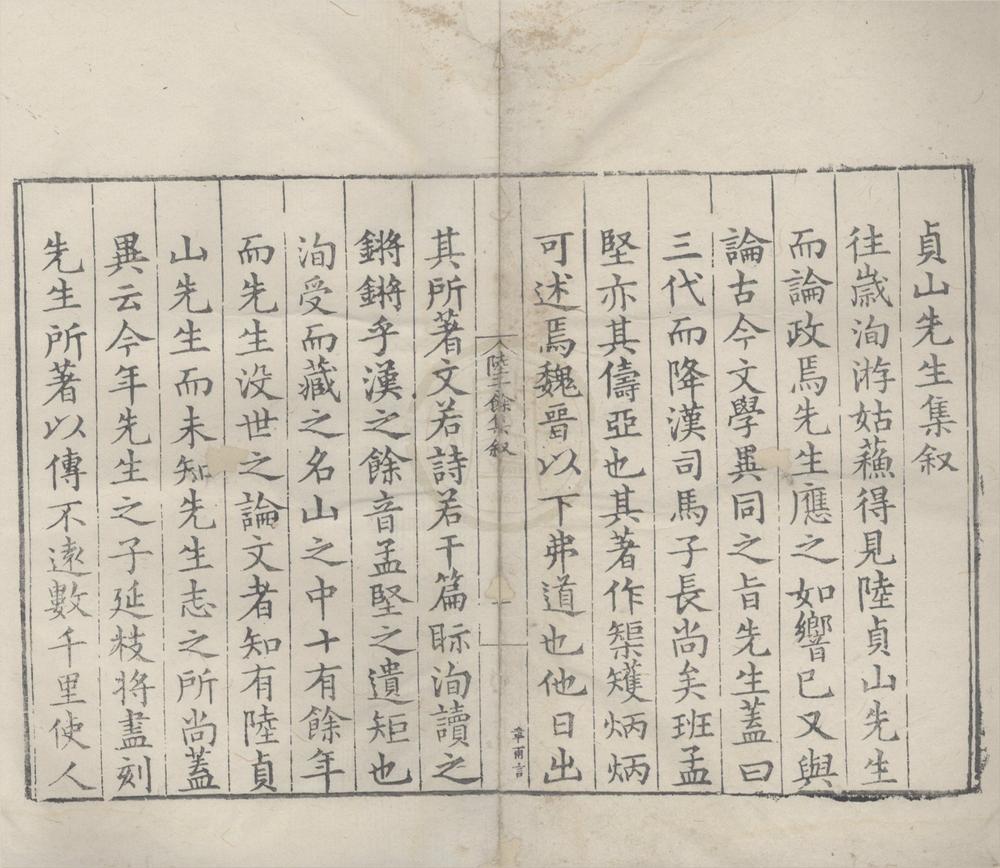 貞山先生集叙
往歲洵游姑蘓得見陸貞山先生
而論政焉先生應之如響已又與
論古今文學異同之旨先生蓋曰
三代而降漢司馬子長尚矣班孟
堅亦其儔亞也其著作榘矱炳炳
可述焉魏晉以下弗道也他日出
陸子餘集叙
一
章甫言
其所著文若詩若干篇眎洵讀之
鏘鏘乎漢之餘音孟堅之遺矩也
洵受而藏之名山之中十有餘年
而先生没世之論文者知有陸貞
山先生而未知先生志之所尚蓋
異云今年先生之子延枝将盡刻
先生所著以傳不遠數千里使人